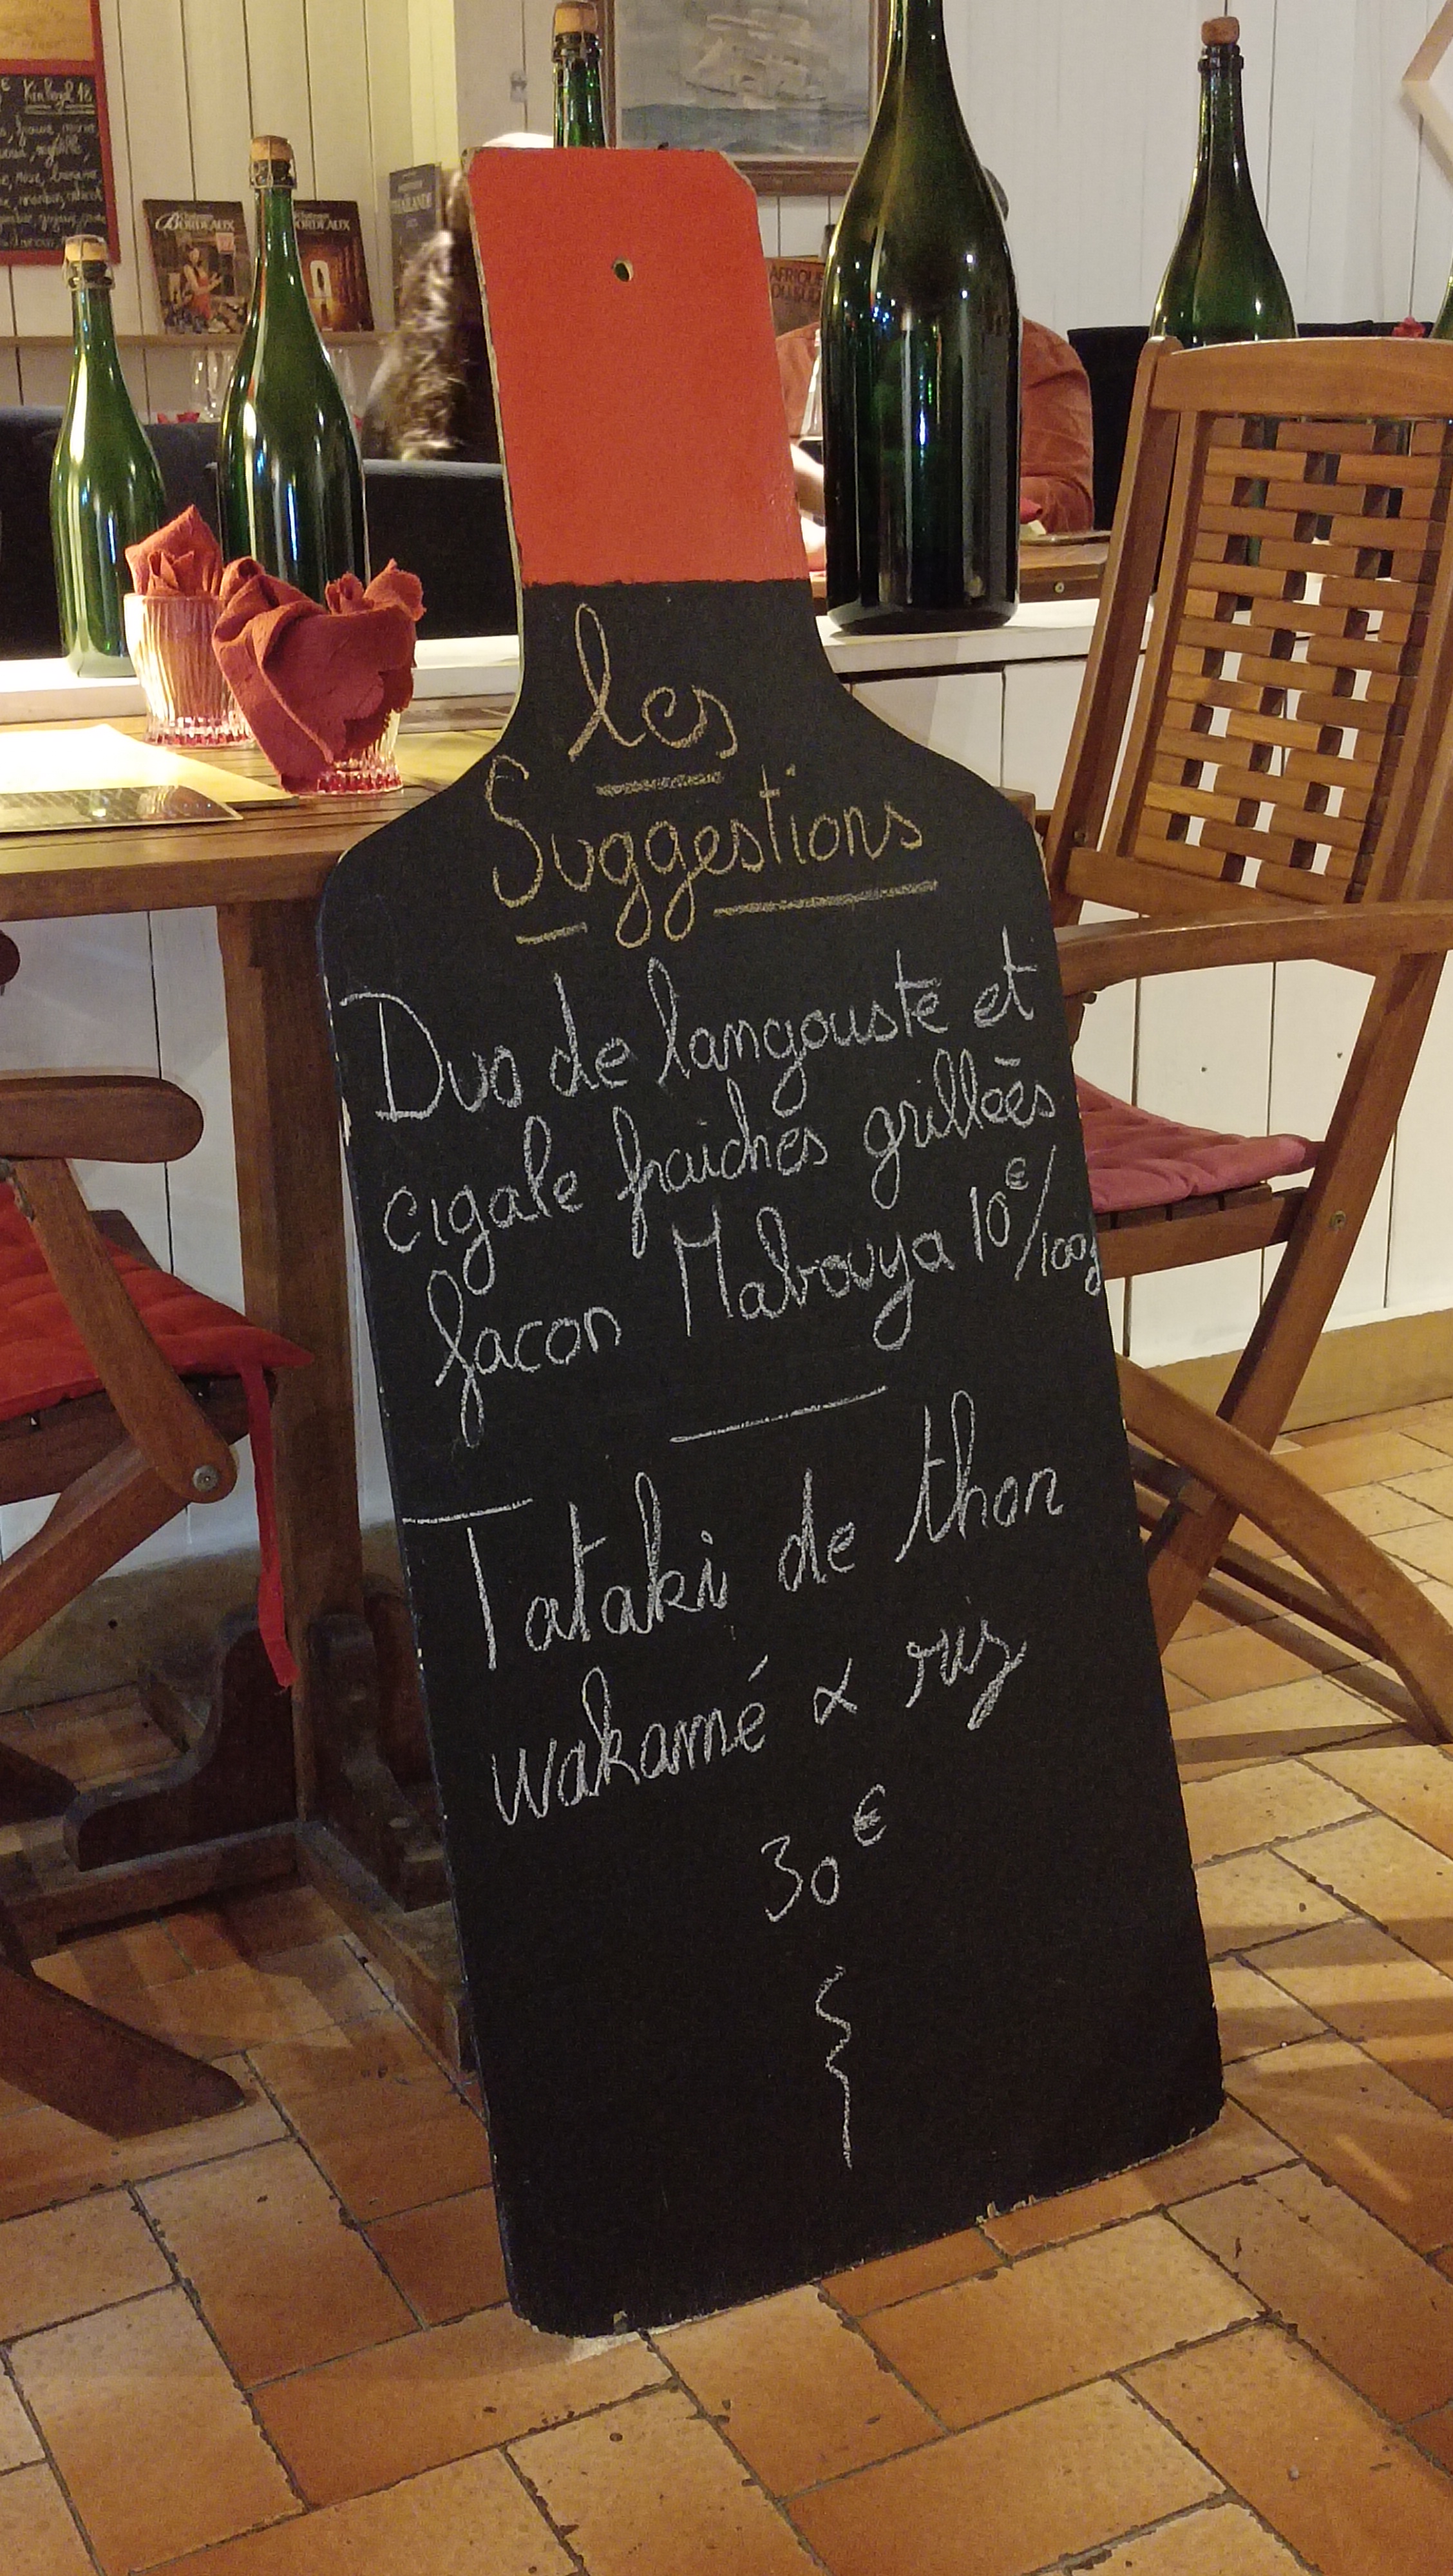 BORDEAUX
BORDEAUX
THAÏLANDE
AFRIQUE
DU SUD
Les
Suggestions
Duo de langouste et
cigale fraiches grillées
facon Mabouya 10€/100g
Tataki de thon
wakamé & riz
30€